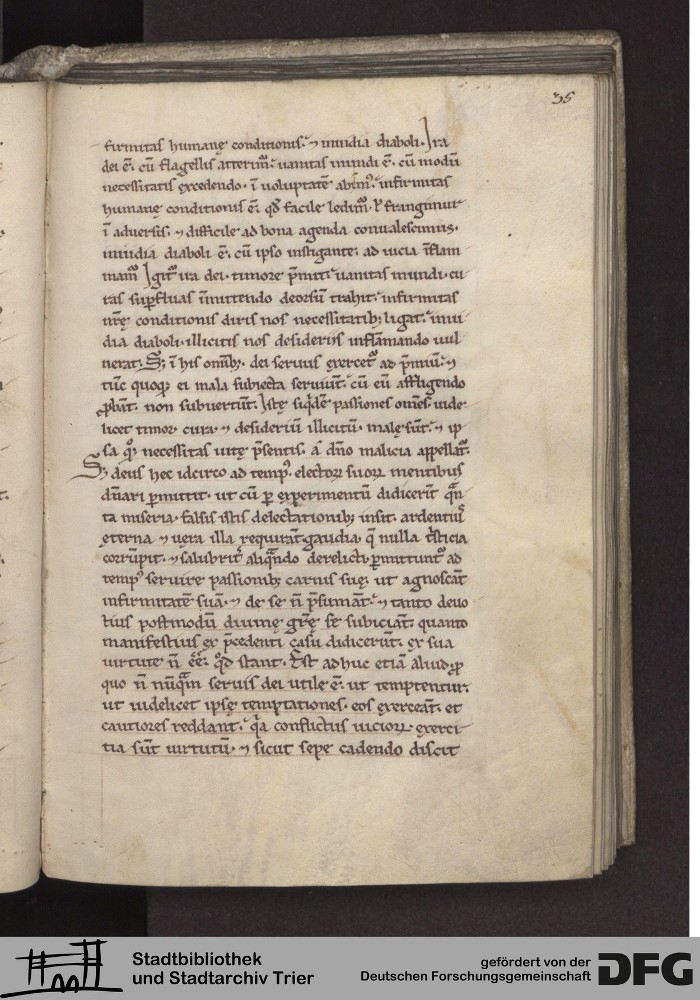 35
firmitas humanę conditionis. ⁊ inuidia diaboli. Ira
dei ē. cū flagellis atterim̄. uanitas mundi ē. cū modū
necessitatis excedendo. ī uoluptatē abim̄. infirmitas
humanę conditionis ē. qđ facile ledim̄. ł frangimur
ī aduersis. ⁊ difficile ad bona agenda conualescimus.
inuidia diaboli ē. cū ipso instigante. ad uicia īflam
mam̄ Igit̄ ira dei. timore p̄mit. uanitas mundi. cu
ras suꝑfluas īmittendo deorsū trahit. infirmitas
nr̄ę conditionis diris nos necessitatibꝫ ligat. inui
dia diaboli. illicitis nos desideriis inflāmando uul
nerat. Sꝫ ī his om̄ibꝫ. dei seruus exercet̄ ad p̄miū. ⁊
tūc quoqꝫ ei mala subiecta seruiūt. cū eū affligendo
ꝓbāt. non subuertūt. Istę siqdē passiones om̄es. uide
licet timor. cura. ⁊ desideriū illicitū. malę sūt. ⁊ ip
sa qꝫ necessitas uitę p̄sentis. a dn̄o malicia appellat̄.
Sꝫ deus hec idcirco ad tempꝰ. electoꝝ suoꝝ mentibus
dn̄ari ꝑmittit. ut cū ꝑ exꝑimentū didicerīt qn̄
ta miseria. falsis istis delectationibꝫ insit. ardentiꝰ
ęterna ⁊ uera illa requirāt gaudia. q̄ nulla t̄sticia
corrūpit. ⁊ salubrit̄ aliqn̄do derelicti ꝑmittunt̄ ad
tempꝰ seruire passionibꝫ carnis suę. ut agnoscāt
infirmitatē suā. ⁊ de se n̄ p̄sumāt. ⁊ tanto deuo
tius postmodū diuinę gr̄ę se subiciāt. quanto
manifestius ex p̄cedenti casu didicerūt. ex sua
uirtute n̄ ēē. qđ stant. Est adhuc etiā aliud ꝓ
quo n̄ nūqm̄ seruis dei utile ē. ut temptentur.
ut uidelicet ipsę temptationes. eos exerceāt. et
cautiores reddant. qa conflictus uicioꝝ exerci
tia sūt uirtutū. ⁊ sicut sepe cadendo discit
Stadtbibliothek
und Stadtarchiv Trier
gefördert von der
Deutschen Forschungsgemeinschaft
DFG